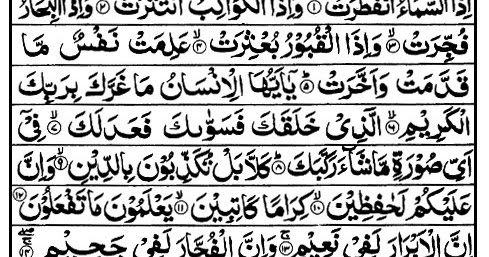 اِذَا السَّمَآءُ انْفَطَرَتْ ۙ﴿۱﴾ وَاِذَا الْكَوَاكِبُ انْتَثَرَتْ ۙ﴿۲﴾ وَاِذَا الْبِحَارُ
فُجِّرَتْ ۙ﴿۳﴾ وَاِذَا الْقُبُوْرُ بُعْثِرَتْ ۙ﴿۴﴾ عَلِمَتْ نَفْسٌ مَّا
قَدَّمَتْ وَاَخَّرَتْ ؕ﴿۵﴾ يٰۤاَيُّهَا الْاِنْسَانُ مَا غَرَّكَ بِرَبِّكَ
الْكَرِيْمِ ۙ﴿۶﴾ الَّذِيْ خَلَقَكَ فَسَوّٰىكَ فَعَدَلَكَ ۙ﴿۷﴾ فِيْۤ
اَيِّ صُوْرَةٍ مَّا شَآءَ رَكَّبَكَ ؕ﴿۸﴾ كَلَّا بَلْ تُكَذِّبُوْنَ بِالدِّيْنِ ۙ﴿۹﴾ وَاِنَّ
عَلَيْكُمْ لَحٰفِظِيْنَ ۙ﴿۱۰﴾ كِرَامًا كَاتِبِيْنَ ۙ﴿۱۱﴾ يَعْلَمُوْنَ مَا تَفْعَلُوْنَ ﴿۱۲﴾
اِنَّ الْاَبْرَارَ لَفِيْ نَعِيْمٍ ۚ﴿۱۳﴾ وَاِنَّ الْفُجَّارَ لَفِيْ جَحِيْمٍ ﴿۱۴﴾